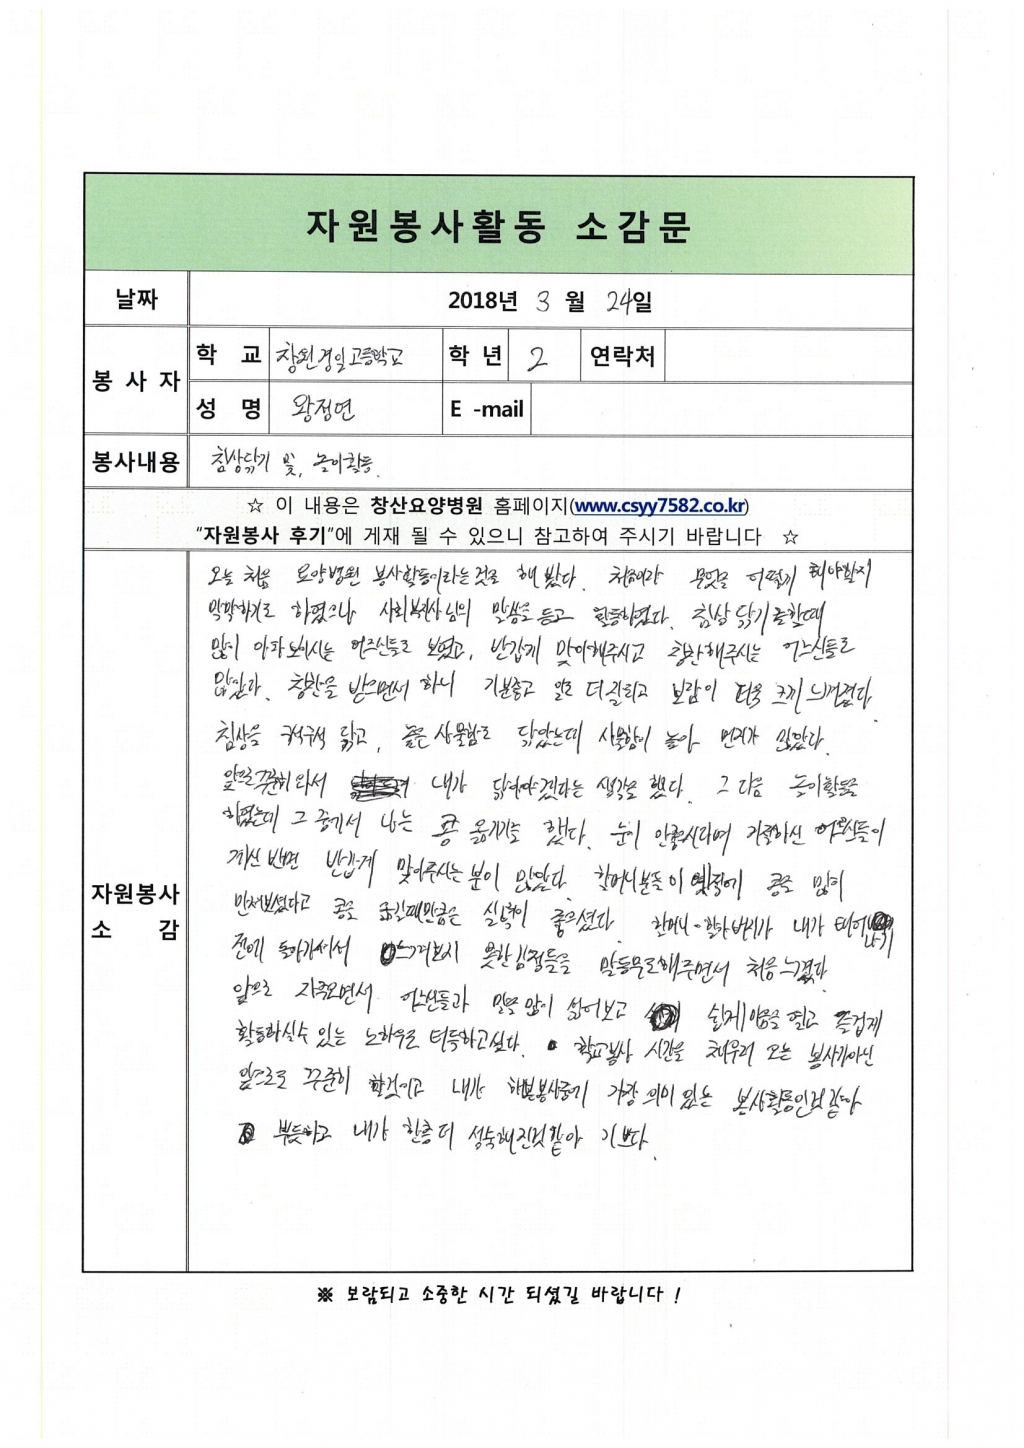 자원봉사활동 소감문
날짜 2018년 3 월 24일
봉 사 자
학 교 창원경일고등학교 학 년 2 연락처
성 명 왕정연 E -mail
봉사내용 침상닦기 및, 놀이활동.
☆ 이 내용은 창산요양병원 홈페이지(www.csyy7582.co.kr)
"자원봉사 후기"에 게재 될 수 있으니 참고하여 주시기 바랍니다 ☆
자원봉사
소 감
오늘 처음 요양병원 봉사활동이라는것을 해 봤다. 처음에가 무엇을 어떻게 해야할지
막막하기도 하였으나 사회복지사님의 말씀을 듣고 활동하였다. 침상 닦기를할때
많이 아파보이시는 어르신들도 보였고, 반갑게 맞이해주시고 칭찬해주시는 어르신들도
많았다. 칭찬을 받으면서 하니 기분좋고 일도 더 잘되고 보람이 더욱 크게 느껴졌다.
침상을 구석구석 닦고, 높은 사물함도 닦았는데 사물함이 높아 먼지가 많았다.
앞으로꾸준히와서 내가 닦아야겠다는 생각을 했다. 그 다음 놀이활동을
하였는데 그 중에서 나는 콩 옮기기를 했다. 눈이 안좋으시다며 거절하신 어르신들이
계신 반면 반갑게 맞아주시는 분이 많았다. 할머니분들이 옛날에 콩을 많이
만져보셨다고 콩을 옮길때만큼은 실력이 좋으셨다. 할머니·할아버지가 내가 태어나기
전에 돌아가셔서 느껴보지 못한감정들을 말동무를해주면서 처음느꼈다.
앞으로 자주오면서 어르신들과 말을 많이 섞어보고 쉽게 마음을 열고 즐겁게
활동하실수 있는 노하우를 터득하고싶다. 학교봉사 시간을 채우러 오는 봉사가아닌
앞으로도 꾸준히 할것이고 내가 해본봉사중에 가장 의미 있는 봉사활동인것 같다
뿌듯하고 내가 한층 더 성숙해진것같아 기쁘다.
※ 보람되고 소중한 시간 되셨길 바랍니다 !